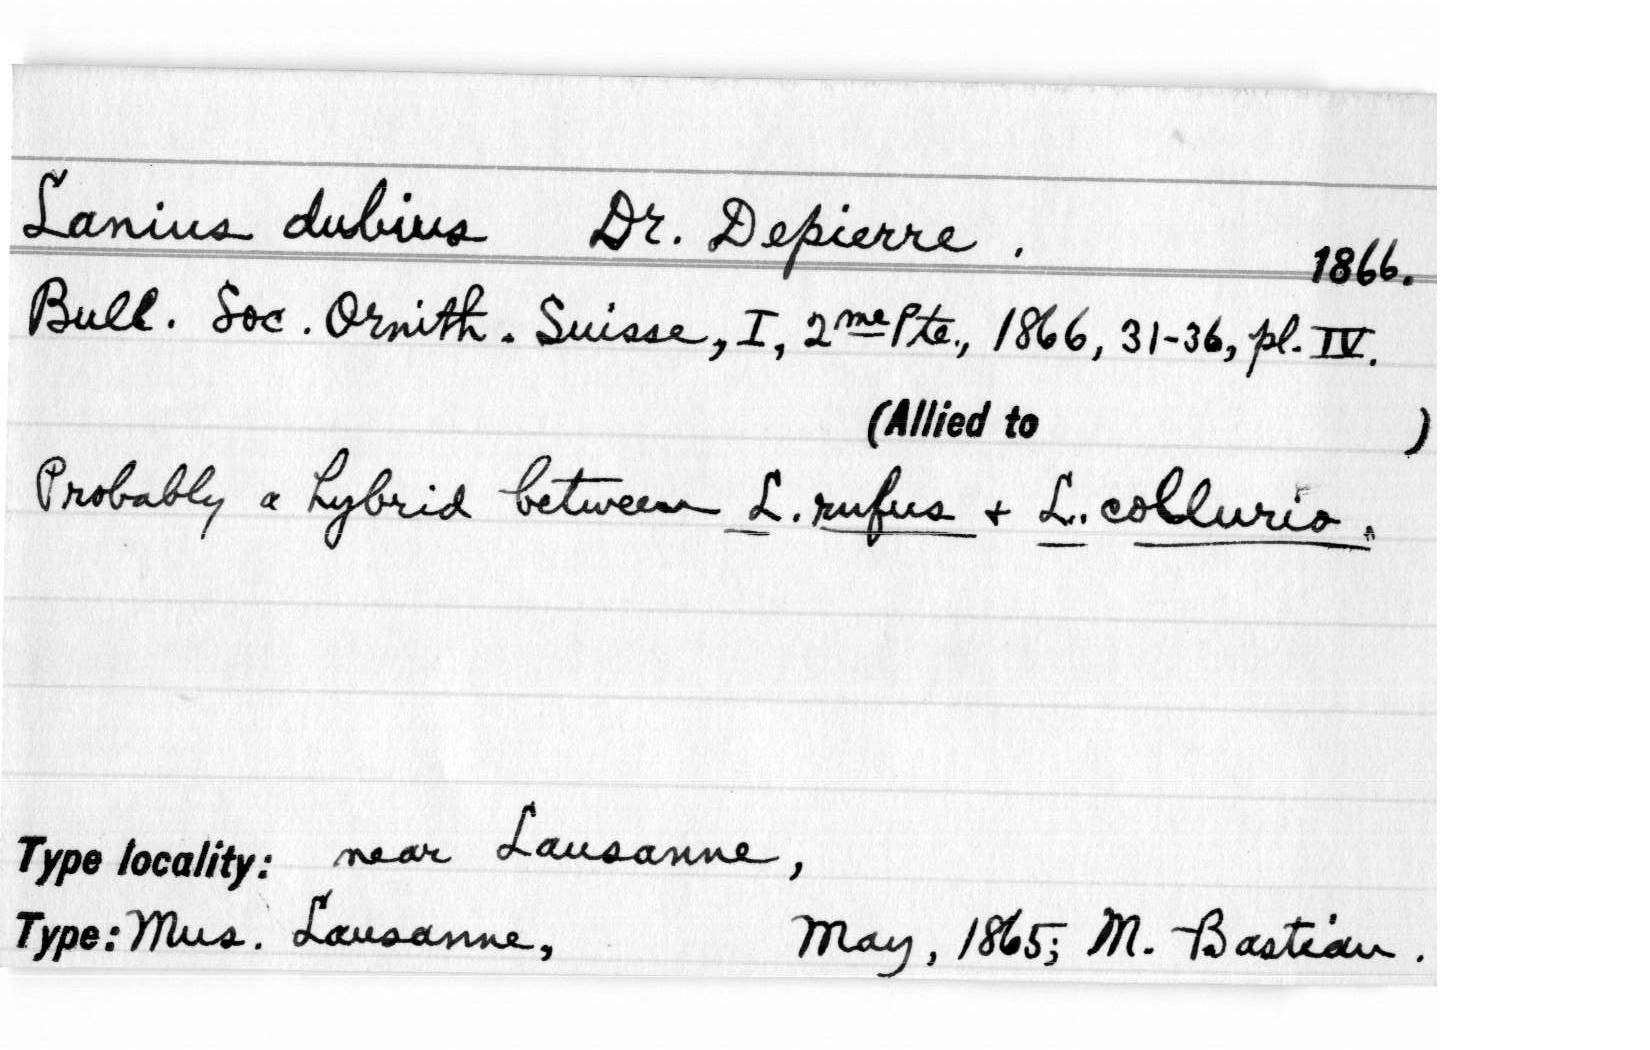 Lanius dubius Dr. Depierre. 1866.
Bull. Soc. Ornith. Suisse, I, 2me Pte., 1866, 31-36, pl. IV.
(Allied to )
Probably a hybrid between L. rufus + L. collurio.
Type locality: near Lausanne,
Type: Mus. Lausanne, May, 1865; M. Bastian.